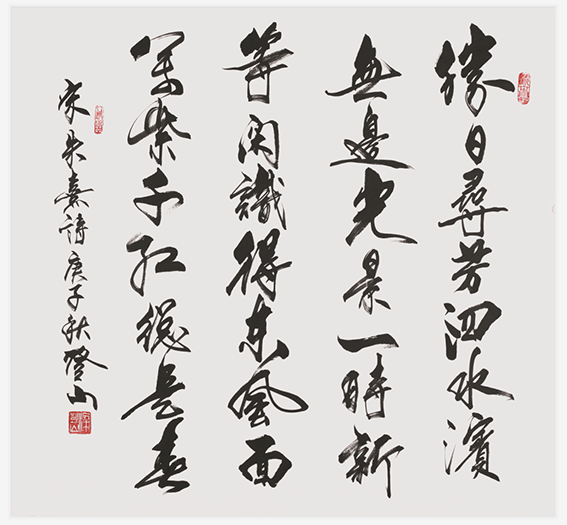 勝日尋芳泗水濱
無邊光景一時新
等闲識得东風面
萬紫千红總是春
宋朱熹詩庚子秋登山